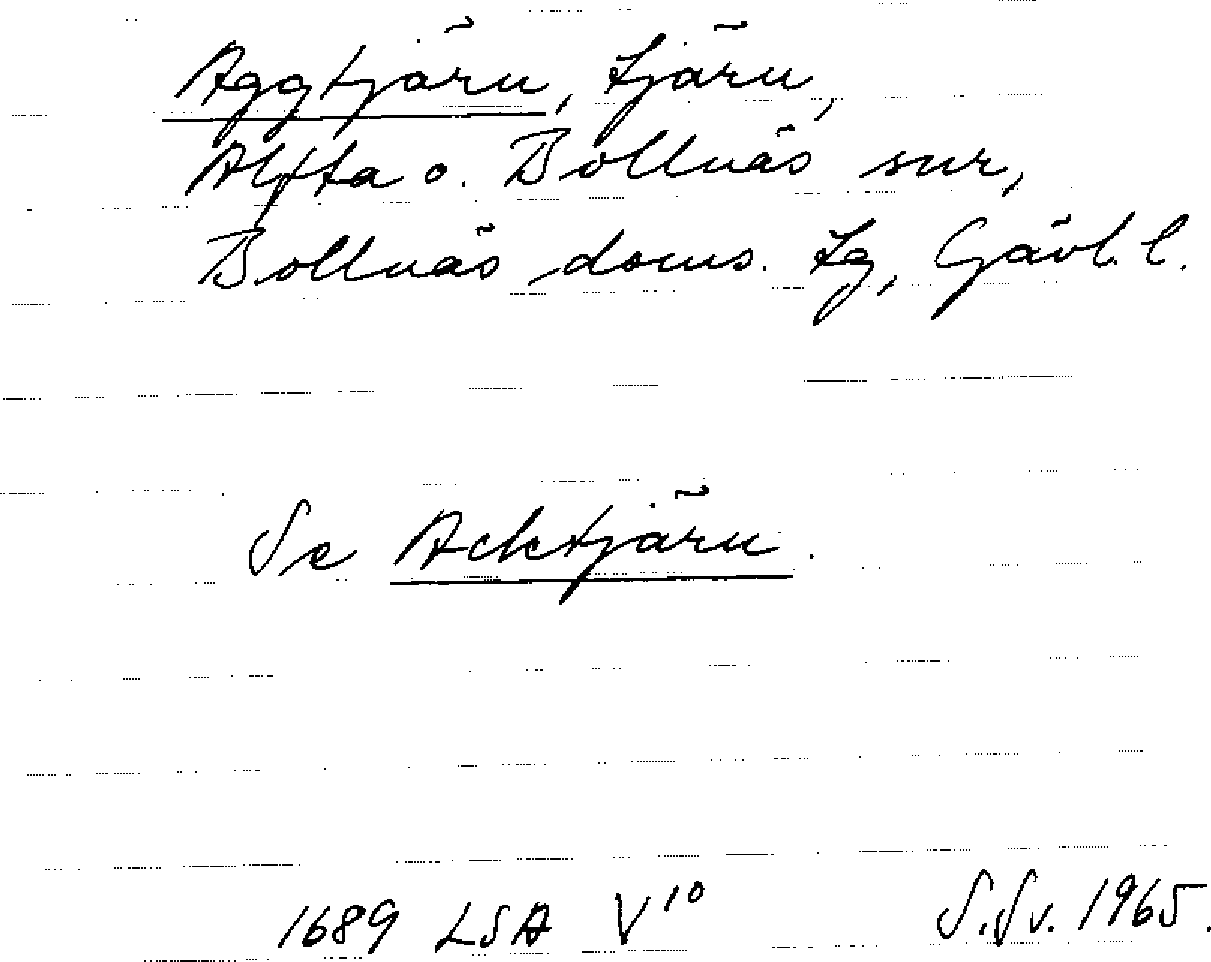 Aggtjärn, tjärn,
Alfta o. Bollnäs snr,
Bollnäs doms. tg, Gävl. l.
Se Acktjärn.
1689 LSA V¹⁰ S.Sv. 1965.